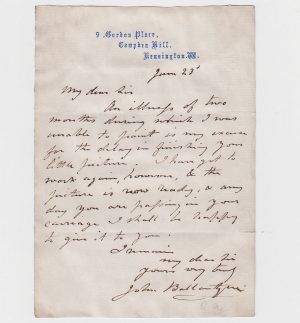 9 Gordon Place,
Campden Hill,
Kensington. W.
June 23d
My dear Sir
An illness of two
months during which I was
unable to paint is my excuse
for the delay in finishing your
little picture. I have got to
work again, however, & the
picture is now ready, & any
day you are passing in your
carriage I shall be happy
to give it to you.
I remain
my dear sir
yours very truly
John Ballantyne